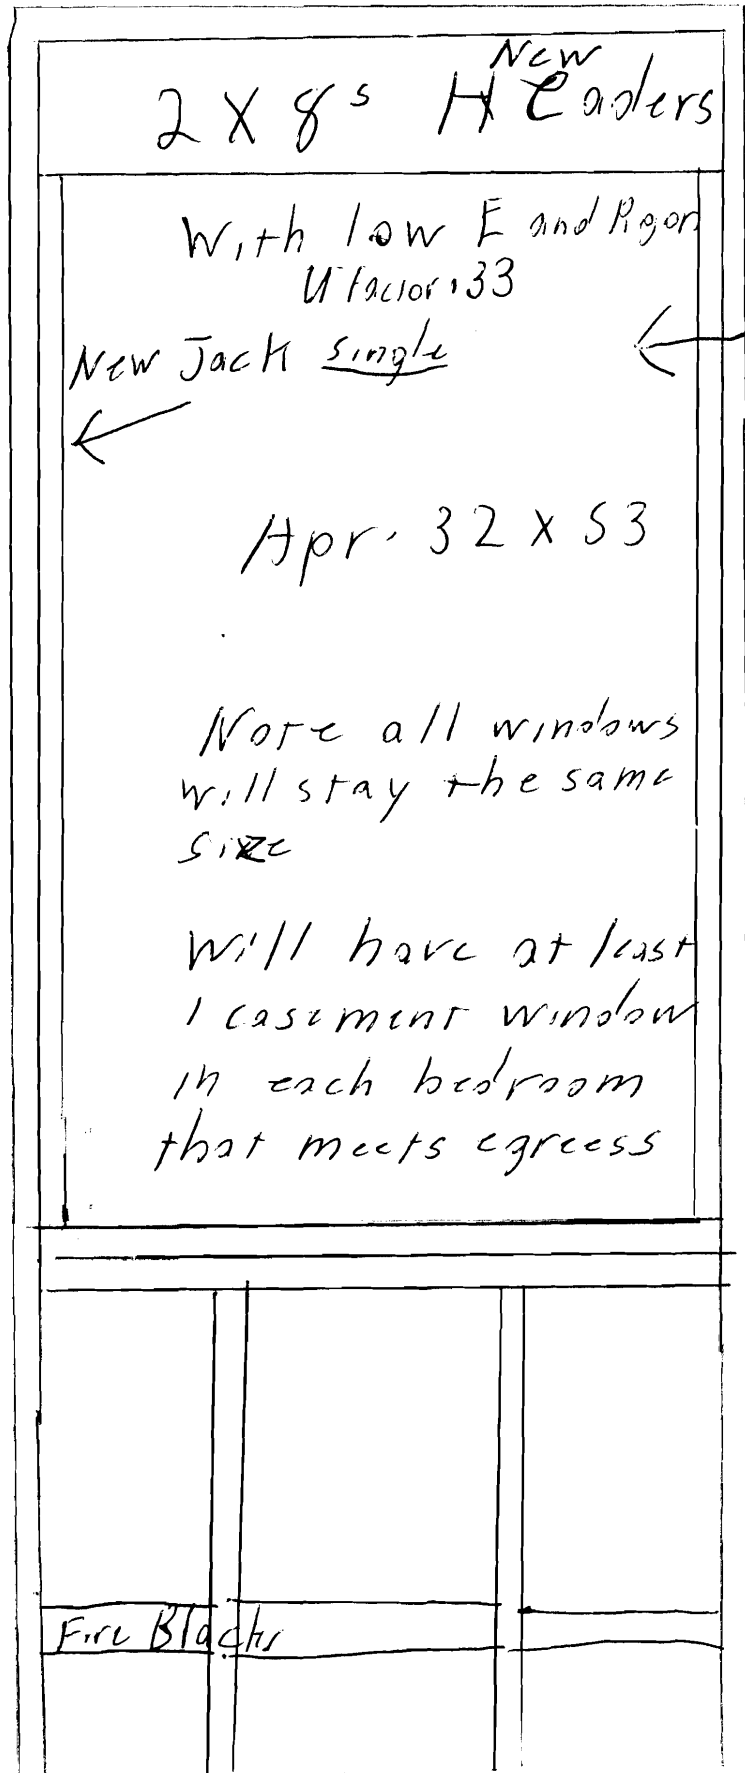 New
2 X 8s Headers
With low E and Argon
U factor .33
New Jack single
Apr. 32 x 53
Note all windows
will stay the same
size
Will have at least
1 casement window
in each bedroom
that meets egreess
Fire Blocks